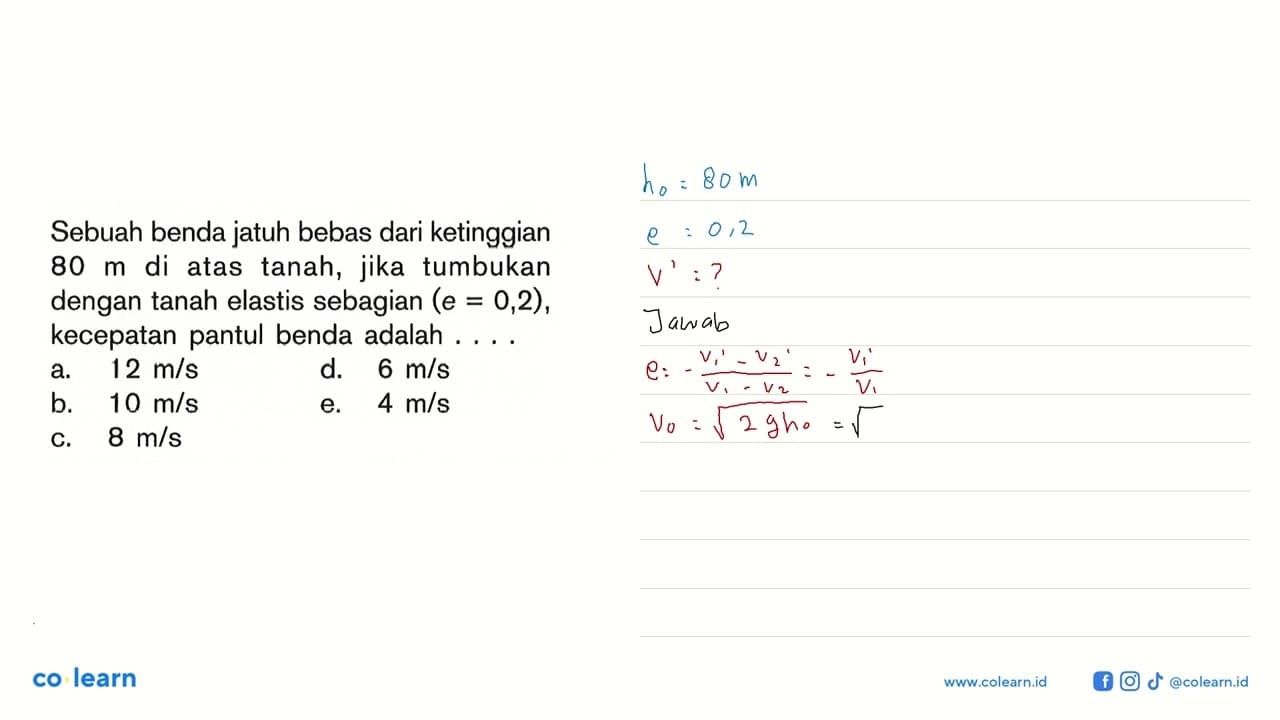 Sebuah benda jatuh bebas dari ketinggian
80 m di atas tanah, jika tumbukan
dengan tanah elastis sebagian (e = 0,2),
kecepatan pantul benda adalah . . . .
a. 12 m/s d. 6 m/s
b. 10 m/s e. 4 m/s
c. 8 m/s
h₀ = 80 m
e : 0,2
v' : ?
Jawab
e : - (v₁' - v₂')/(v₁ - v₂) = - v₁'/v₁
v₀ = √(2gh₀) = √
co learn
www.colearn.id
@colearn.id